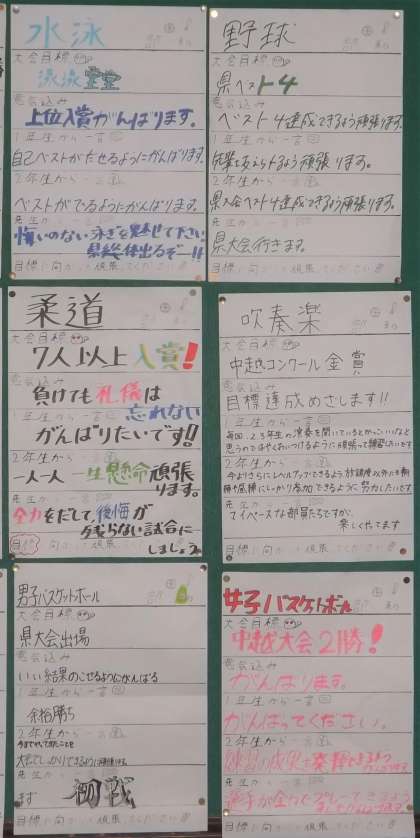 水泳
大会目標
泳泳堂堂
意気込み
上位入賞がんばります。
1年生から一言
自己ベストがだせるようにがんばります。
2年生から一言
ベストがでるようにがんばります。
先生から一言
悔いのない泳ぎを魅せて下さい
県総体出るぞー!!
目標に向かって頑張ってください
野球
大会目標
県ベスト4
意気込み
ベスト4達成できるよう頑張ります。
1年生から一言
頑張ります。
2年生から一言
県大会ベスト4達成できるよう頑張ります。
先生から一言
県大会行きます。
目標に向かって頑張ってください
柔道
大会目標
7人以上入賞!
意気込み
負けても礼儀は
忘れない
1年生から一言
がんばりたいです!!
2年生から一言
一人一人一生懸命頑張
ります。
先生から一言
全力をだして、後悔が
残らない試合に
しましょう
目標に向かって頑張ってください
吹奏楽
大会目標
中越コンクール金賞
意気込み
目標達成めざします!!
1年生から一言
毎回、2、3年生の演奏を聞いているとかっこいいなと
思うのではやくおいつけるように頑張って練習したいです
2年生から一言
今よりさらにレベルアップできるよう放課後以外にも朝
練や昼練にしっかり参加できるように努力したいです
先生から一言
マイペースな部員たちですが、
楽しくやってます
目標に向かって頑張ってください
男子バスケットボール
大会目標
県大会出場
意気込み
いい結果のこせるようにがんばる
1年生から一言
余裕勝ち
2年生から一言
今までやってきたことを
大会でしっかりできるように頑張ります。
先生から一言
まず初戦
目標に向かって頑張ってください
女子バスケットボール
大会目標
中越大会2勝!
意気込み
がんばります。
1年生から一言
がんばってください。
2年生から一言
練習の成果を発揮できるよう
先生から一言
選手が全力でプレーできるよう
目標に向かって頑張ってください